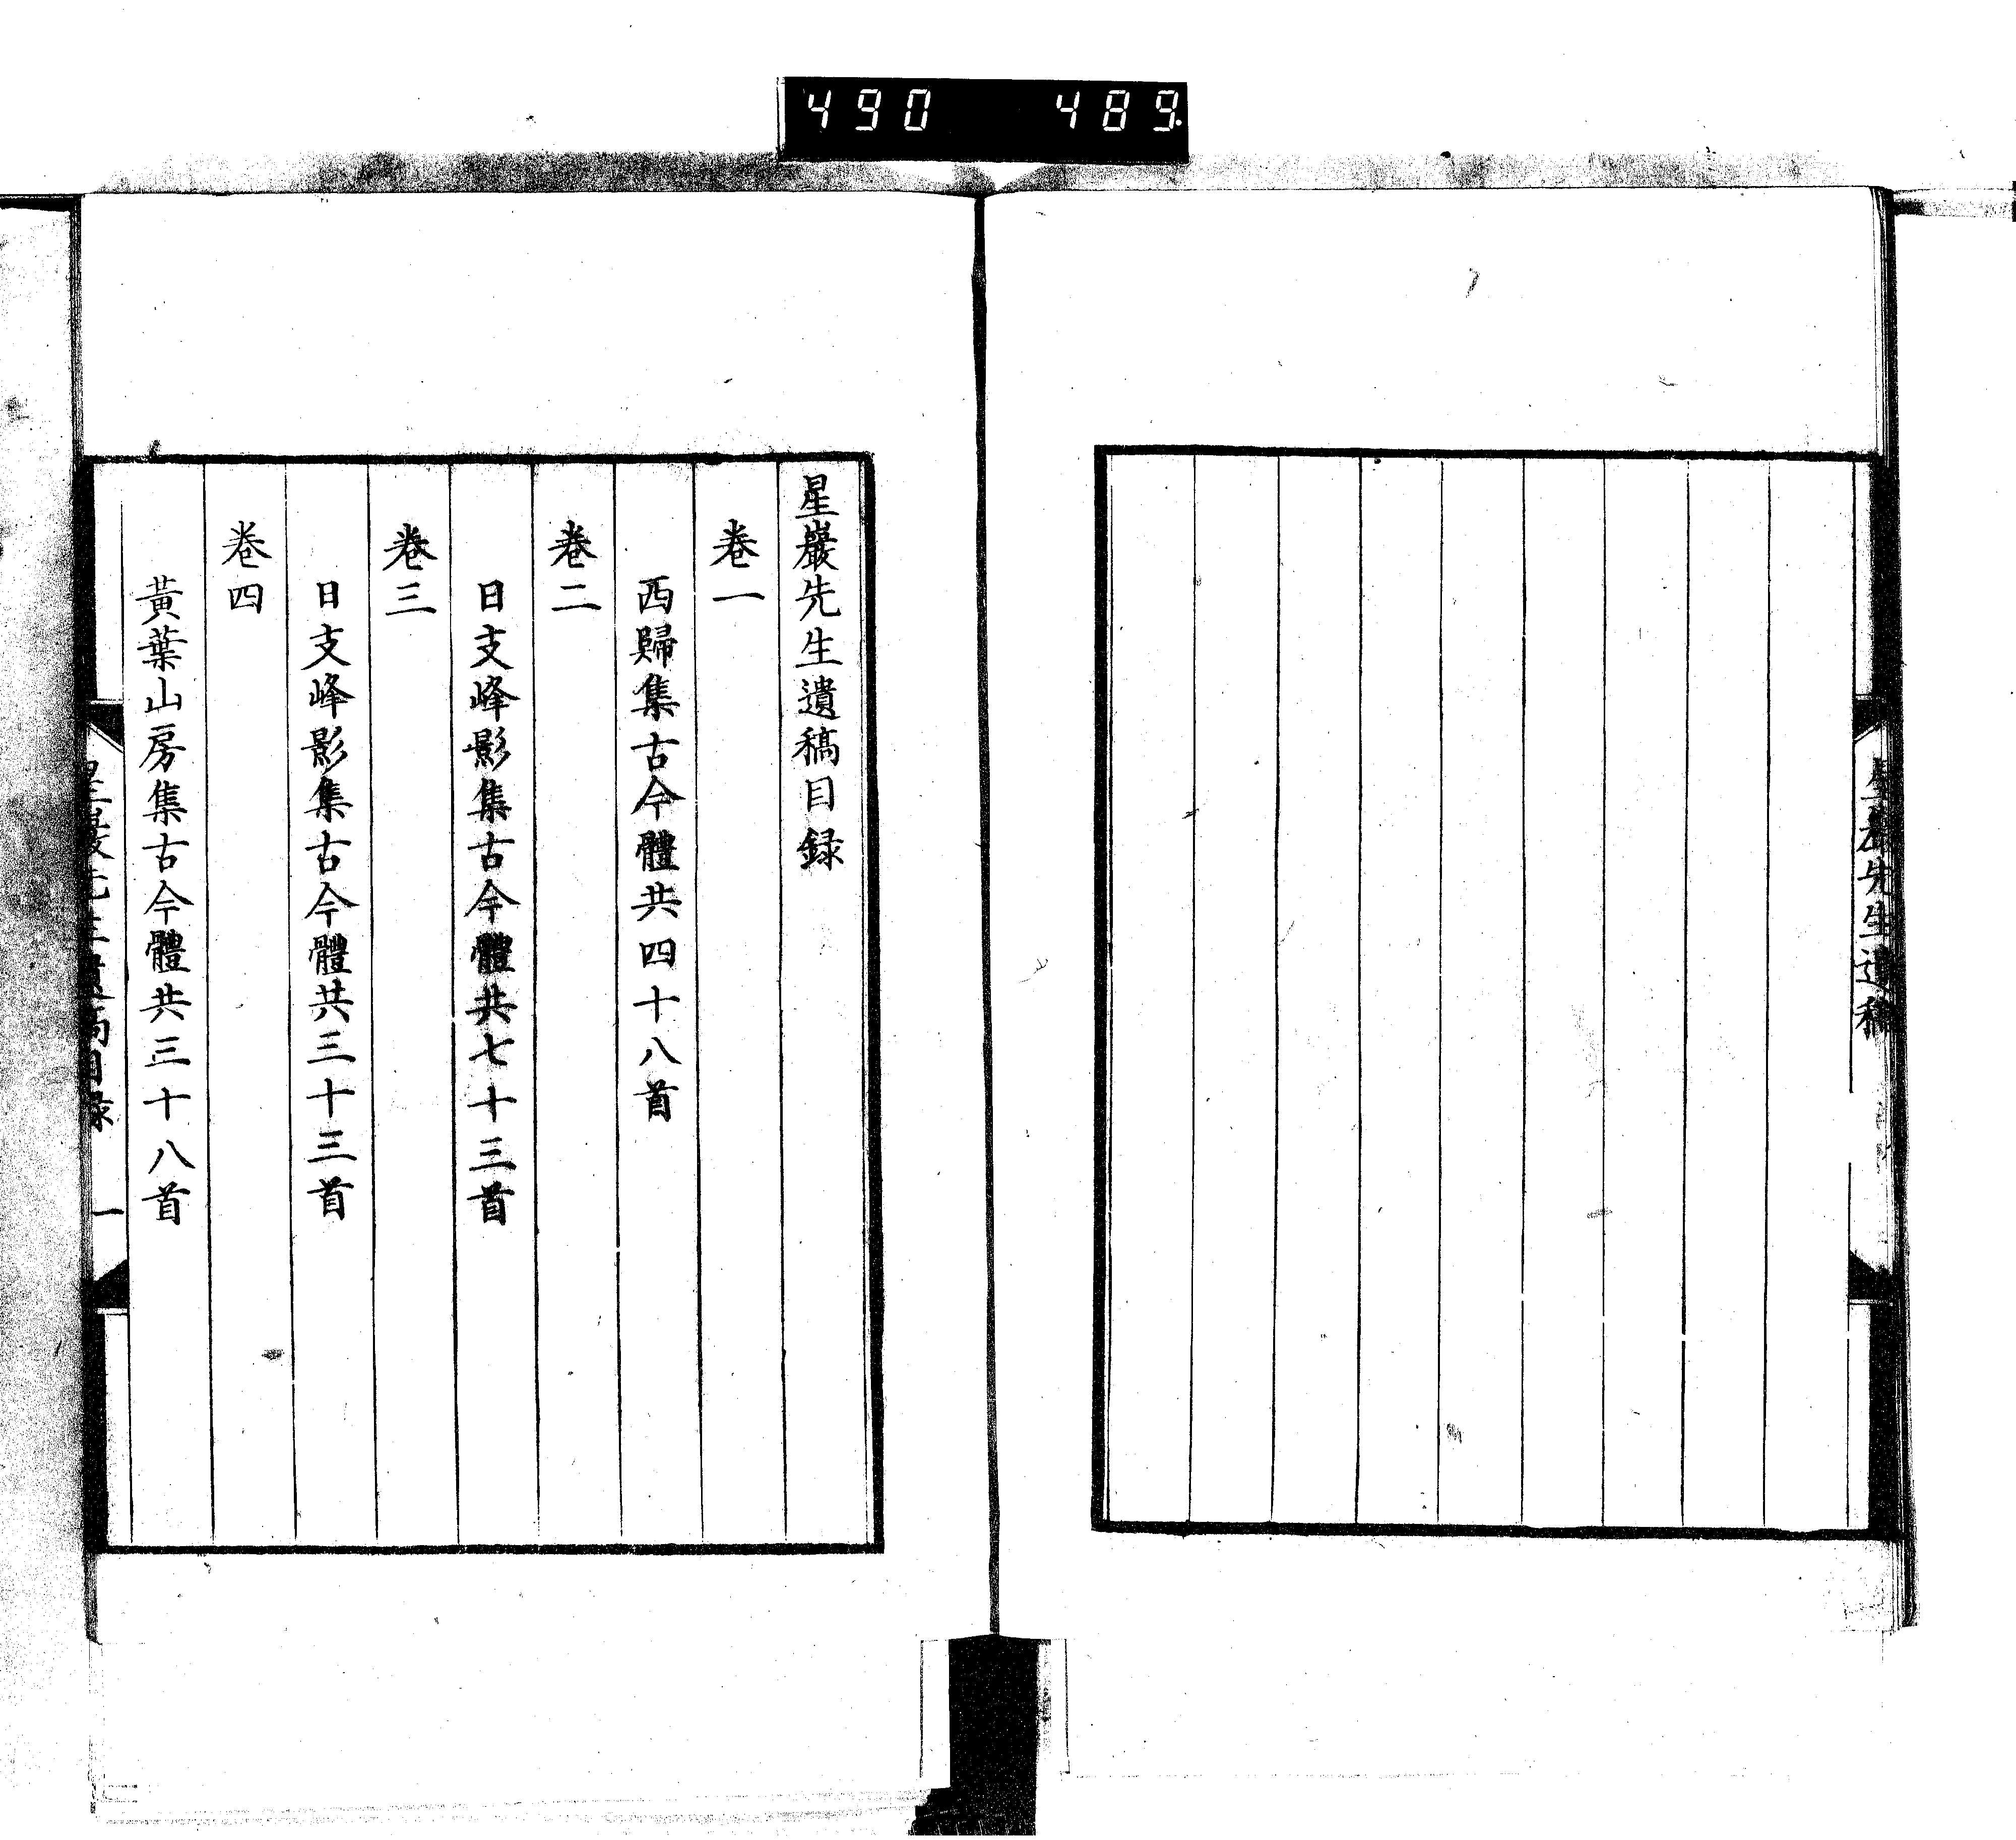 490 489
星巖先生遺稿
星巖先生遺稿目録
卷一
西歸集古今體共四十八首
卷二
日支峰影集古今體共七十三首
卷三
日支峰影集古今體共三十三首
卷四
黃葉山房集古今體共三十八首
星巖先生遺稿目録 一